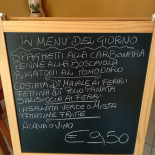 IN MENU DEL GIORNO
SPAGHETTI ALLA CARBONARA
PENNE ALLA BOSCAIOLA
RIGATONI AL POMODORO
COSTATA DI MAIALE AI FERRI
FETTINA DI POLLO PANATA
SALSICCIA AI FERRI
INSALATA VERDE O MISTA
PATATINE FRITTE
ACQUA O VINO
€ 9,50